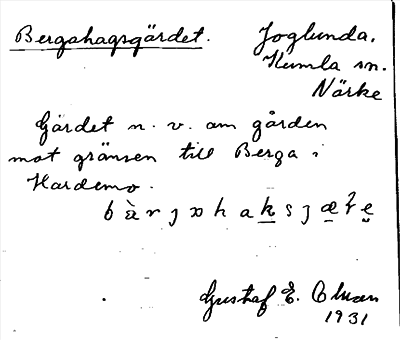 Bergahagsgärdet.
Joglunda.
Kumla sn.
Närke
Gärdet n. v. om gården
mot gränsen till Berga i
Hardemo.
Gustaf E.
1931